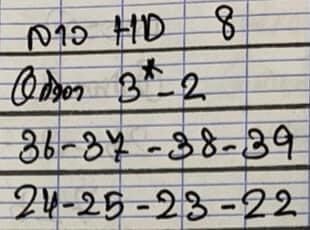 ลาว HD 8
3*-2
36-37-38-39
24-25-23-22